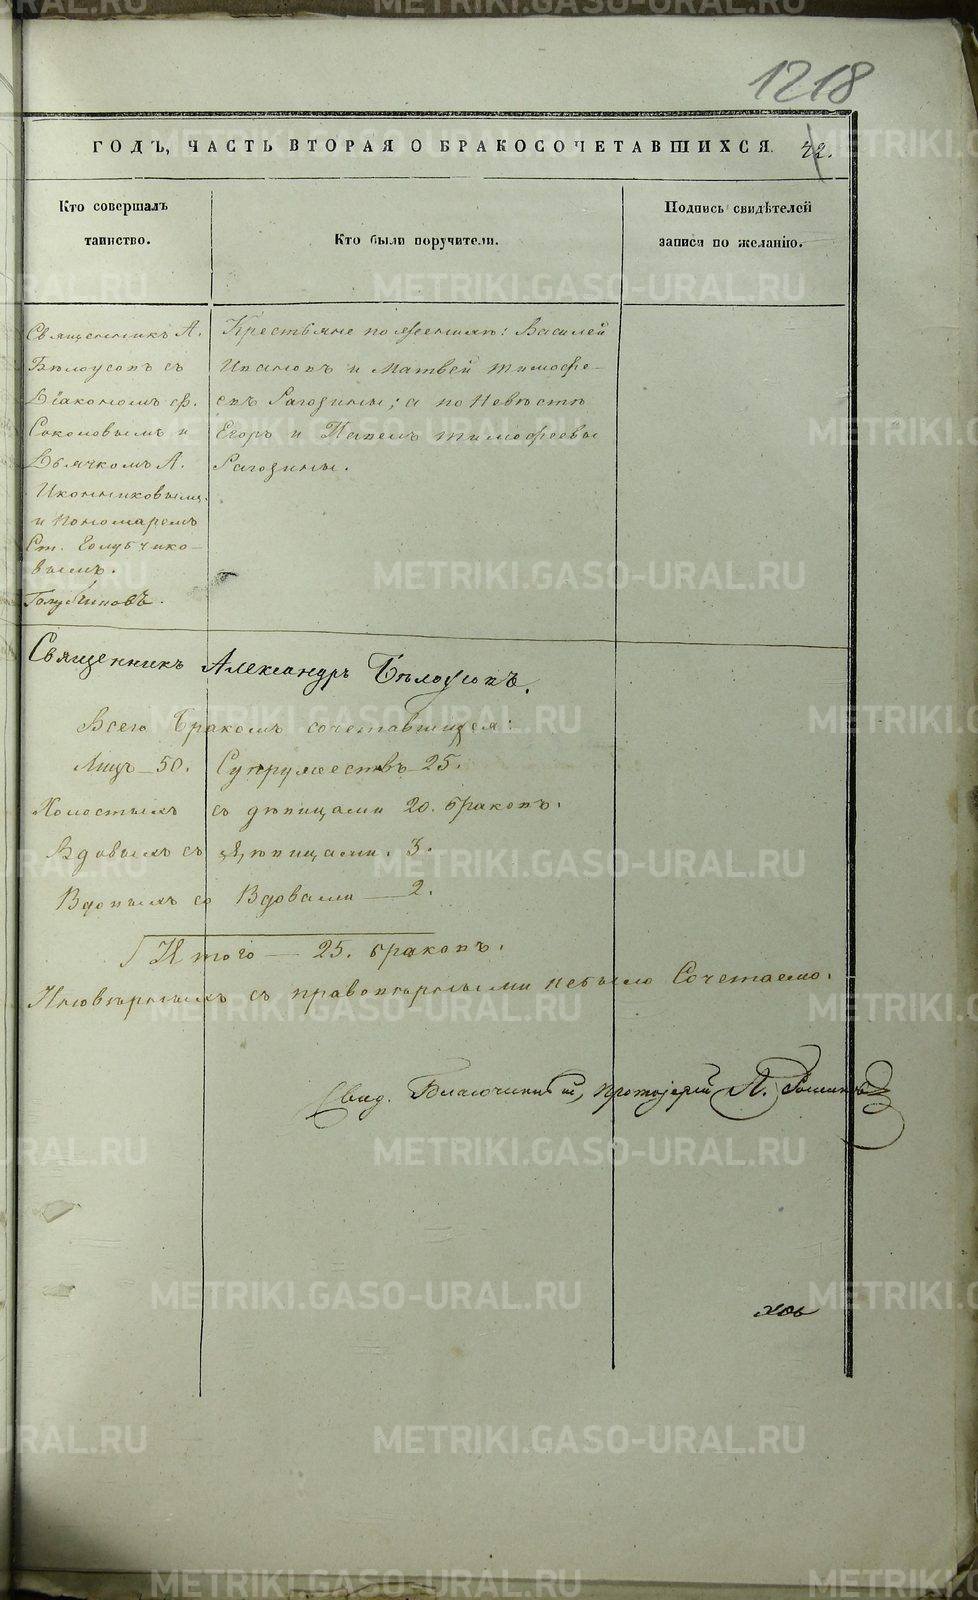 1218
ГОДЪ, ЧАСТЬ ВТОРАЯ О БРАКОСОЧЕТАВШИХСЯ.
Кто совершалъ
таинство.
Кто были поручители.
Подпись свидѣтелей
записи по желанію.
Священникъ А.
Бѣлоусовъ съ
Діакономъ Ф.
Соколовымъ и
Дьячкомъ А.
Иконниковымъ
и Пономаремъ
Ст. Голубчико-
вымъ.
Голубчиковъ.
Крестьяне по женихѣ: Василей
Ивановъ и Матвей Тимофе-
евъ Рагозины; а по Невѣстѣ
Егоръ и Павелъ Тимофеевы
Рагозины.
Священникъ Александръ Бѣлоусовъ.
Всего Бракомъ сочетавшихся:
Лицъ – 50. Супружествъ 25.
Холостымъ съ дѣвицами 20. браковъ.
Вдовымъ съ дѣвицами. 3.
Вдовымъ со Вдовами — 2.
Итого — 25. браковъ.
Иновѣрныхъ съ правовѣрными небыло Сочетаемо.
Свид. Благочинный, Протоіерей А.
METRIKI.GASO-URAL.RU